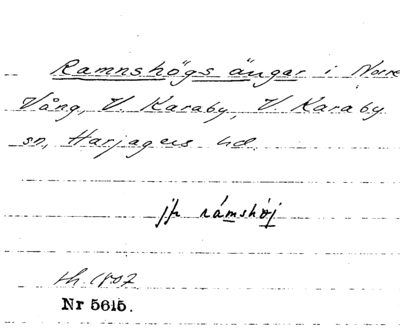 Ramnshögs ängar i Norre
Vång, V. Karaby, V. Karaby
sn, Harjagers hd.
jfr rámshøj
th. 1807
Nr 5615.